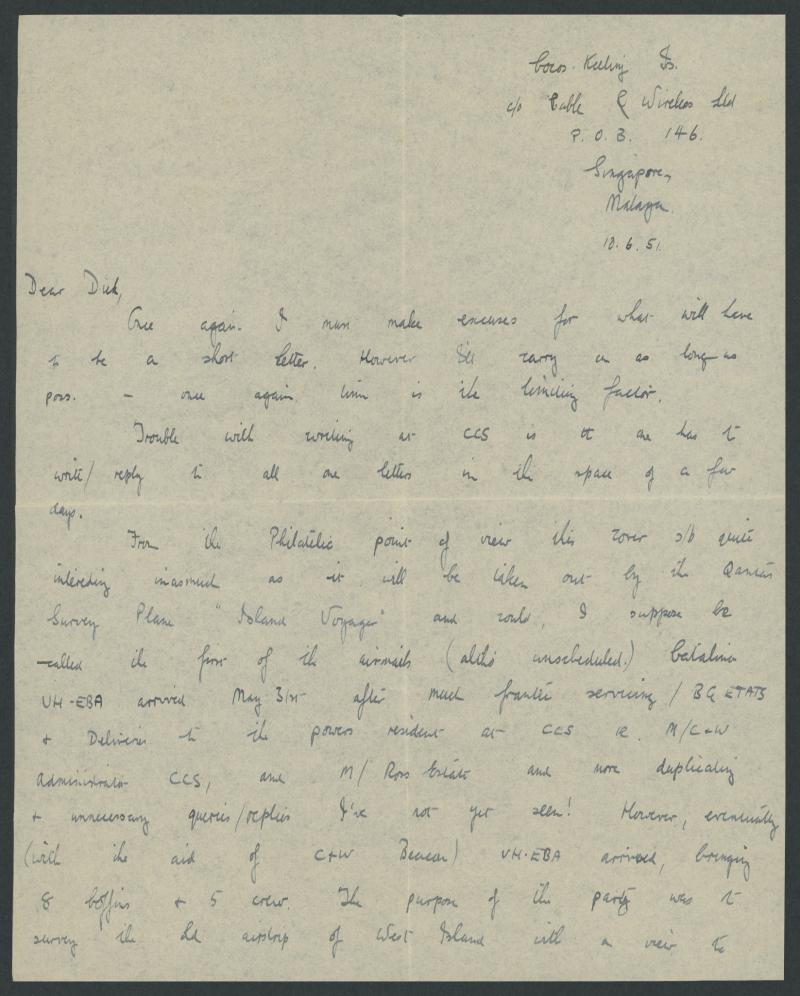 Cocos-Keeling Is.
c/o Cable & Wireless Ltd
P.O.B. 146.
Singapore,
Malaya.
10.6.51.
Dear Dick,
Once again I must make excuses for what will have
to be a short letter. However I'll carry on as long as
poss. – once again time is the limiting factor.
Trouble with writing at CCS is tt one has to
write/reply to all one letters in the space of a few
days.
From the Philatelic point of view this cover s/b quite
interesting inasmuch as it will be taken out by the Qantas
Survey Plane "Island Voyager" and could, I suppose be
called the first of the airmails (altho unscheduled.) Catalina
VH-EBA arrived May 31st after much frantic servicing / BQ ETATS
+ Deliveries to the powers resident at CCS ie. M/C+W
Administrator CCS, and M/Ross Estate and more duplicating
+ unnecessary queries/replies I've not yet seen! However, eventually
(with the aid of C+W Beacon) VH-EBA arrived, bringing
8 boffins + 5 crew. The purpose of the party was to
survey the old airstrip of West Island with a view to